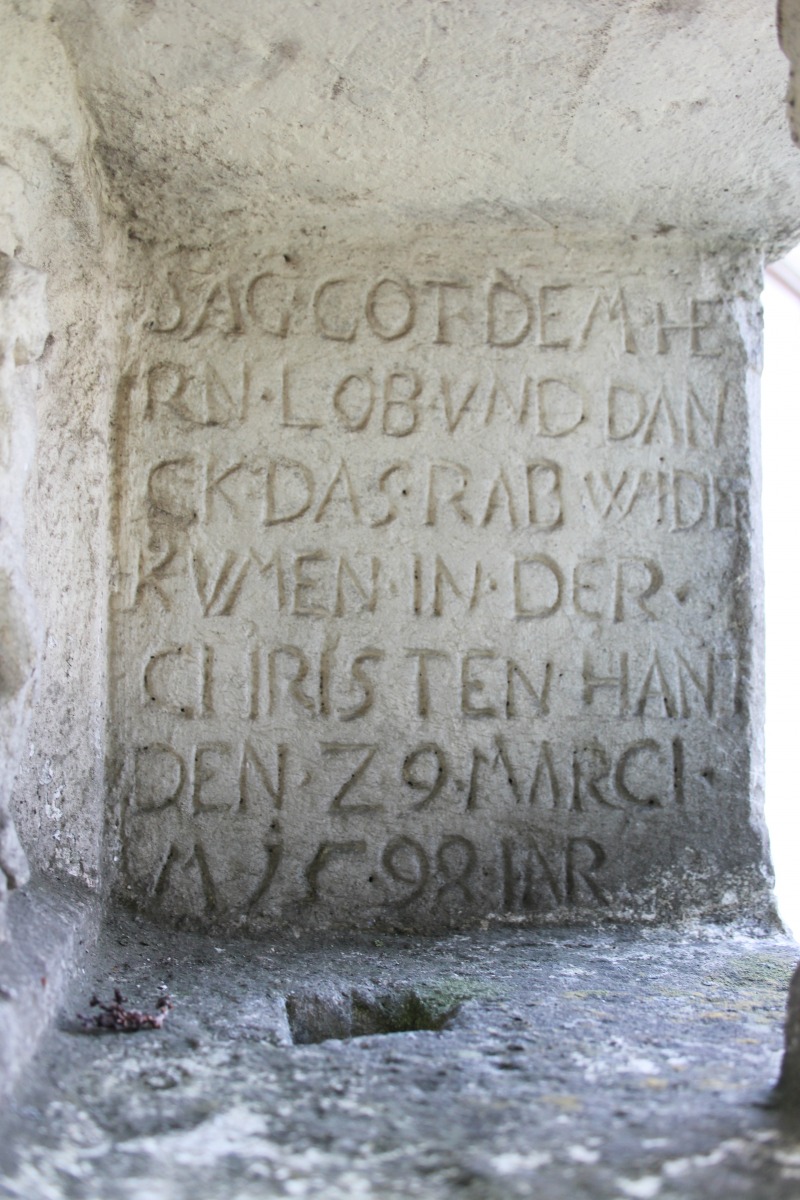 SAG GOT DEM HE
RN · LOB VND DAN
CK · DAS · RAB WIDER
KVMEN · IN · DER ·
CHRIS TEN HANT
DEN · Z 9 · MARCI ·
M 15 · 98 · IAR